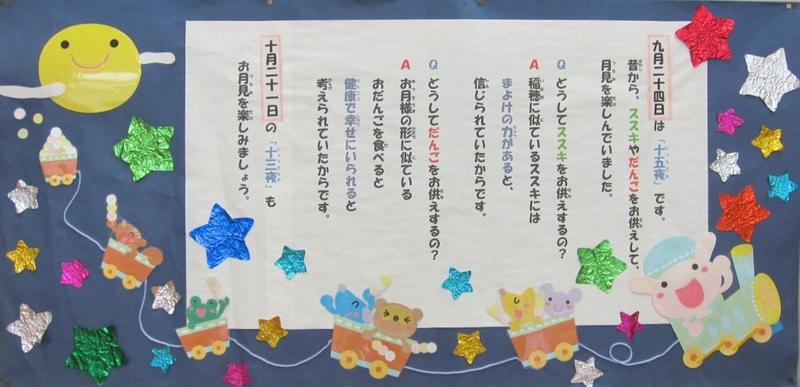 九月二十四日は「十五夜」です。
昔から、ススキやだんごをお供えして、
月見を楽しんでいました。
Q どうしてススキをお供えするの？
A 稲穂に似ているススキには
まよけの力があると、
信じられていたからです。
Q どうしてだんごをお供えするの？
A お月様の形に似ている
おだんごを食べると
健康で幸せにいられると
考えられていたからです。
十月二十一日の「十三夜」も
お月見を楽しみましょう。